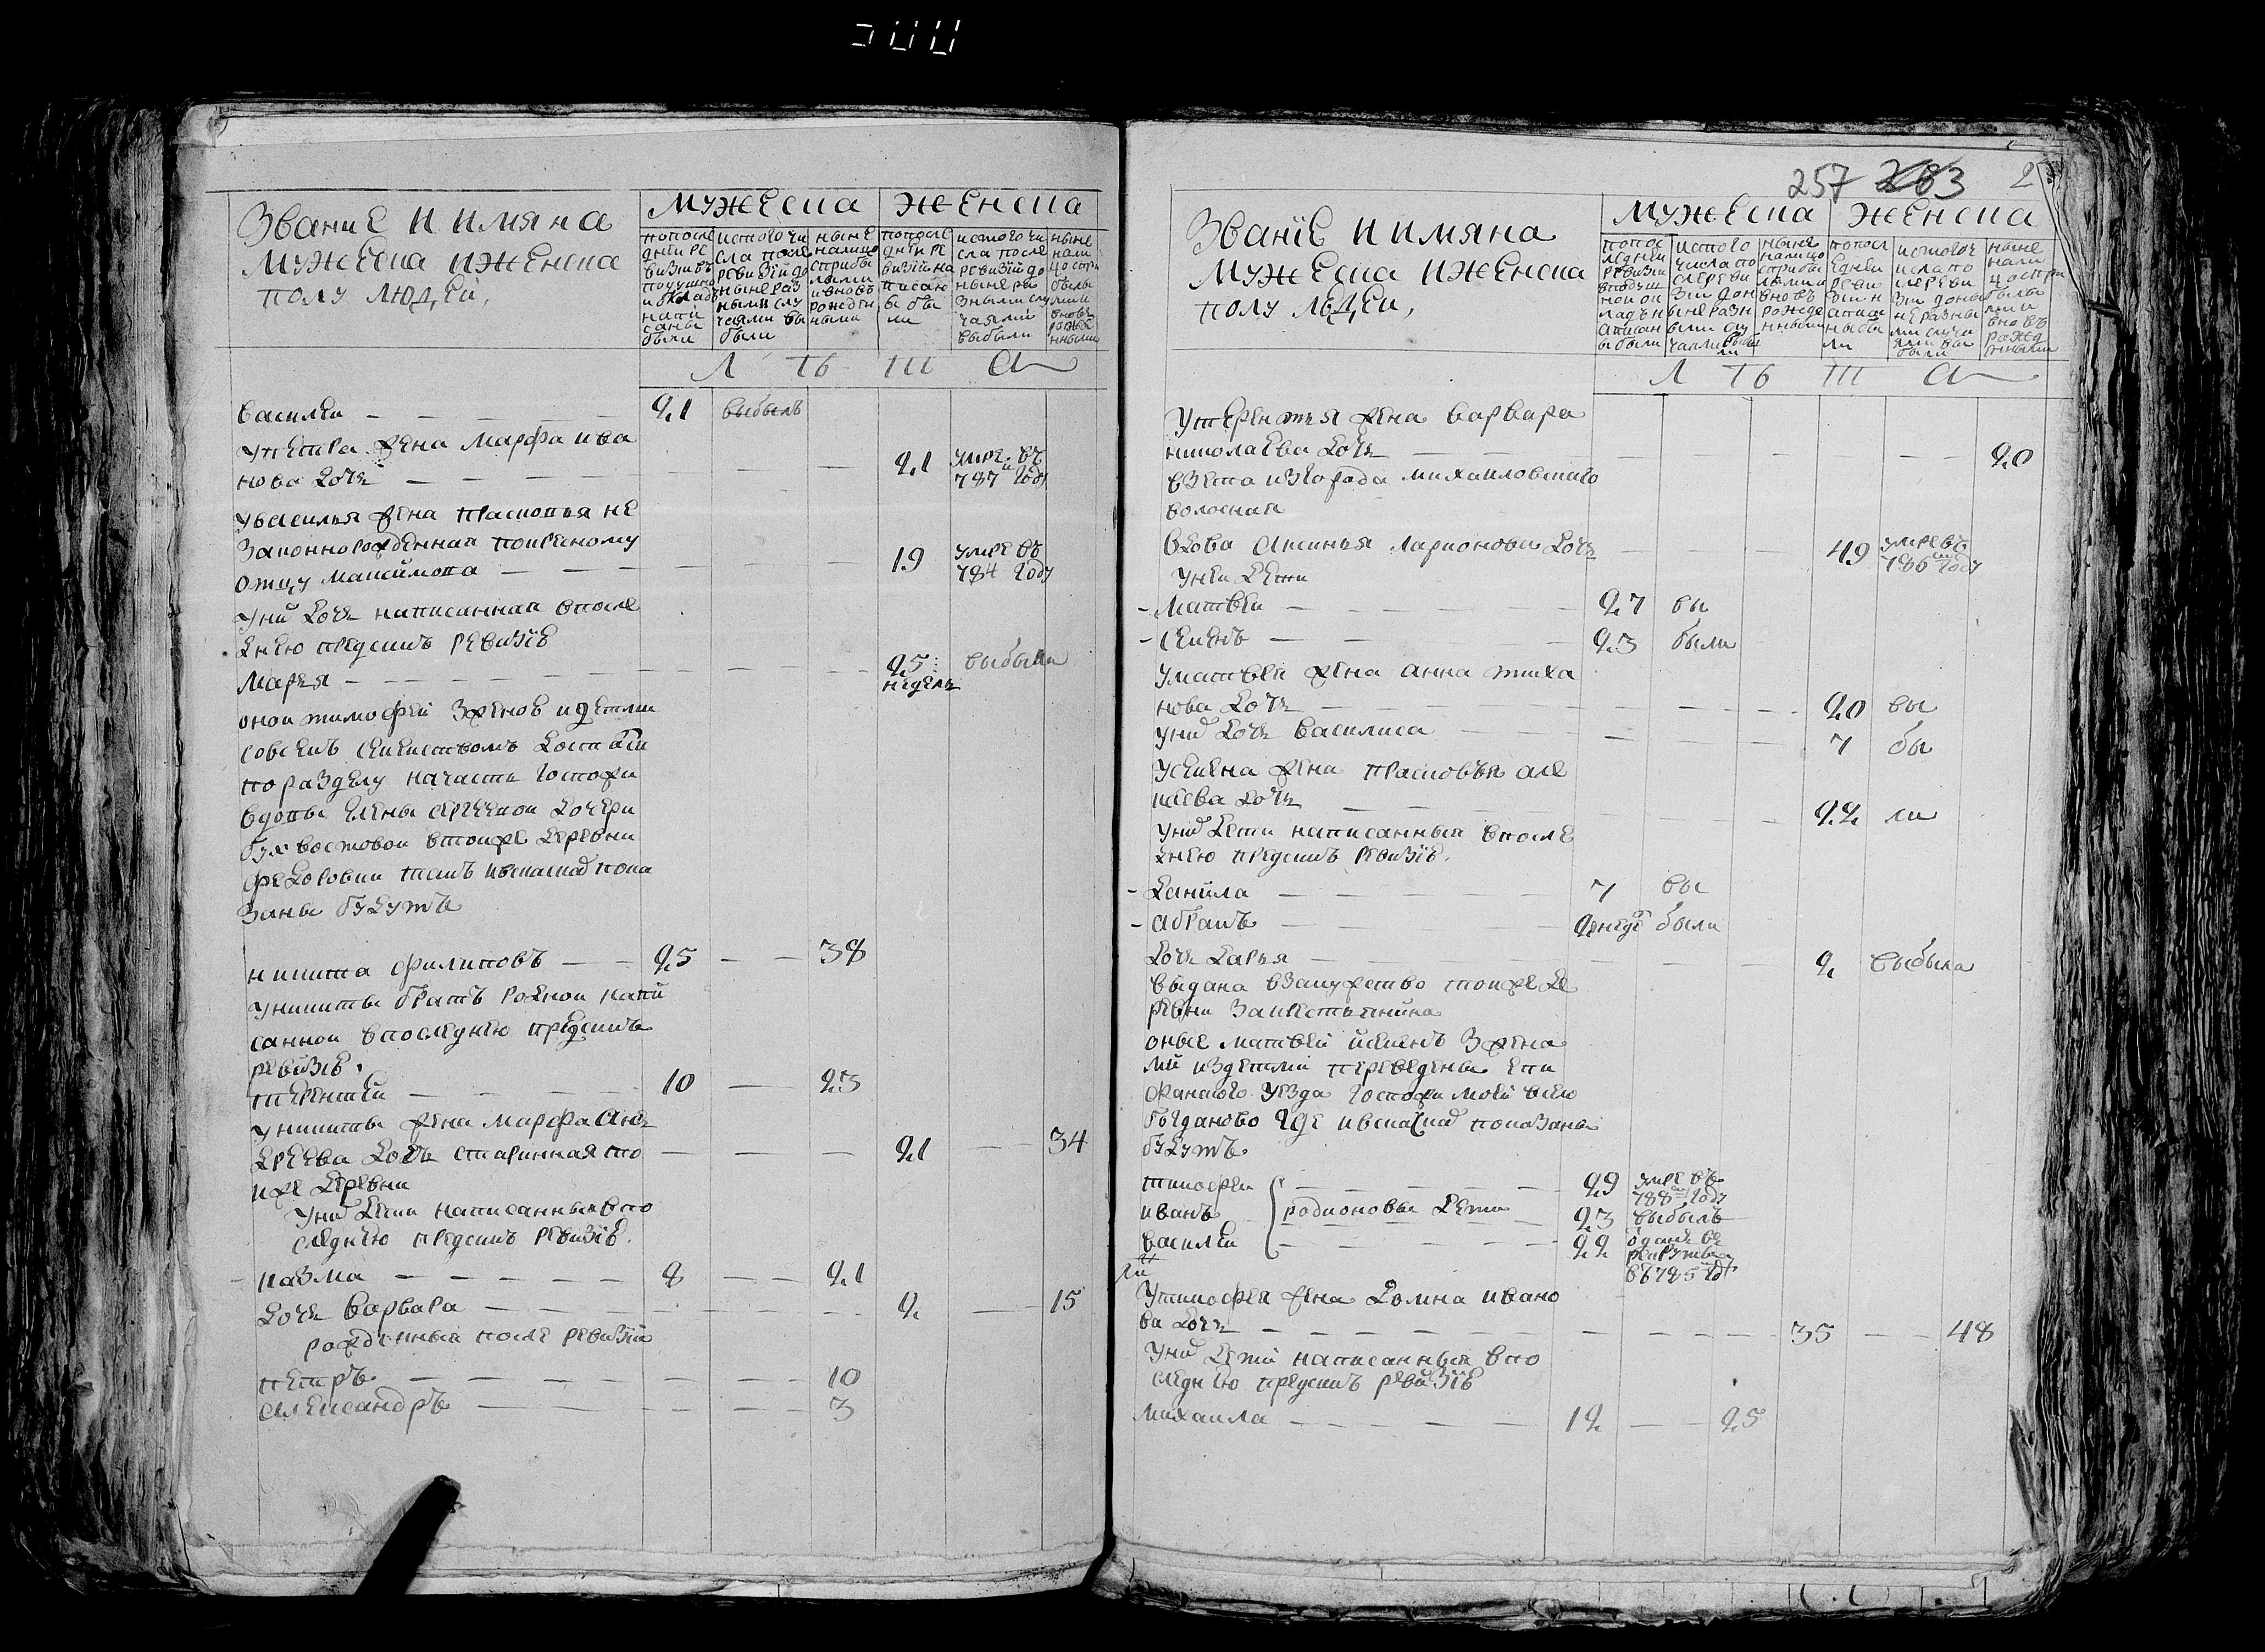 500
Званiе и имяна
мужеска и женска
полу людей,
мужеска
женска
попосле
дней ре
визiи въ
подушно
и окладъ
напи
саны
были
истого чи
сла после
ревизiи до
ныне раз
ными слу
чаями вы
были
ныне
налицо
сприбы
лыми
ивновь
рожден
ными
попосле
дней ре
визiи на
писан
ы бы
ли
истого чи
сла после
ревизiи до
ныне ра
зными слу
чаями
выбыли
ныне
нали
цо спри
былы
ми и
вновь
рожде
нными
Л Ѣ Т А
василеи 21 выбылъ
упетра жена марфа ива
нова дочь 21 умре въ 787м году
увасилья жена прасковья не
законнорожденная покресному
отцу максимова 19 умре въ 784 году
унихъ дочь написанная впосле
днею предсимъ ревизiю
марья 25 недель выбыли
оной тимофей зженою и детми
совсемъ семействомъ достался
поразделу начасть госпожи
вдовы елены сергеевой дочери
бухвостовой втойже деревни
федоровки тамъ ивсказке пока
заны будутъ
никита филиповъ 25 38
уникиты братъ родной напи
санной впоследнею предсимъ
ревизiю
терентей 10 23
уникиты жена марфа анд
реева дочь старинная то 21 34
йже деревни
унихъ дети написанныя впо
следнею предсимъ ревизiю
казма 8 21
дочь варвара 2 15
рожденныя после ревизiи
петръ 10
александръ 3
257 283
Званiе и имяна
мужеска и женска
полу людей,
мужеска
женска
попос
ледней
ревизiи
вподуш
ной ок
ладъ н
аписан
ы были
истого
числа по
сле реви
зiи дон
ыне разн
ыми слу
чаями выбы
ли
ныне
налицо
сприбы
лыми и
вновь
рожде
нными
попосл
едней
реви
зiи н
аписа
ны бы
ли
истогоч
исла по
сле реви
зiи доны
не разны
ми случа
ями вы
были
ныне
нали
цо спри
былы
ми и
вновь
рожд
енными
Л Ѣ Т А
утерентья жена варвара
николаева дочь 20
взята изгорода михайловскаго
волосная
вдова аксинья ларионова дочь 49 умре въ 786м году
унеи дети
матвеи 27 вы
семенъ 23 были
уматвея жена анна тиха
нова дочь 20 вы
унихъ дочь василиса 7 бы
усемена жена прасковья але
ксеева дочь 22 ли
унихъ дети написанныя впосле
днею предсимъ ревизiю.
данила 7 вы
абрамъ 2 неде были
дочь дарья 2 выбыла
выдана взамужство тойже де
ревни закрестьянина
оные матвей исеменъ зжена
ми издетми переведены епи
фанского уезда госпожи моей всело
богданово где ивсказке показаны
будутъ
тимофеи 29 умре въ 788м году
иванъ родионовы дети 23 выбылъ
василей 22 отданъ въ рекруты въ 785 году
утимофея жена домна ивано
ва дочь 35 48
унихъ дети написанныя впо
следнею предсимъ ревизiю
михаила 12 25